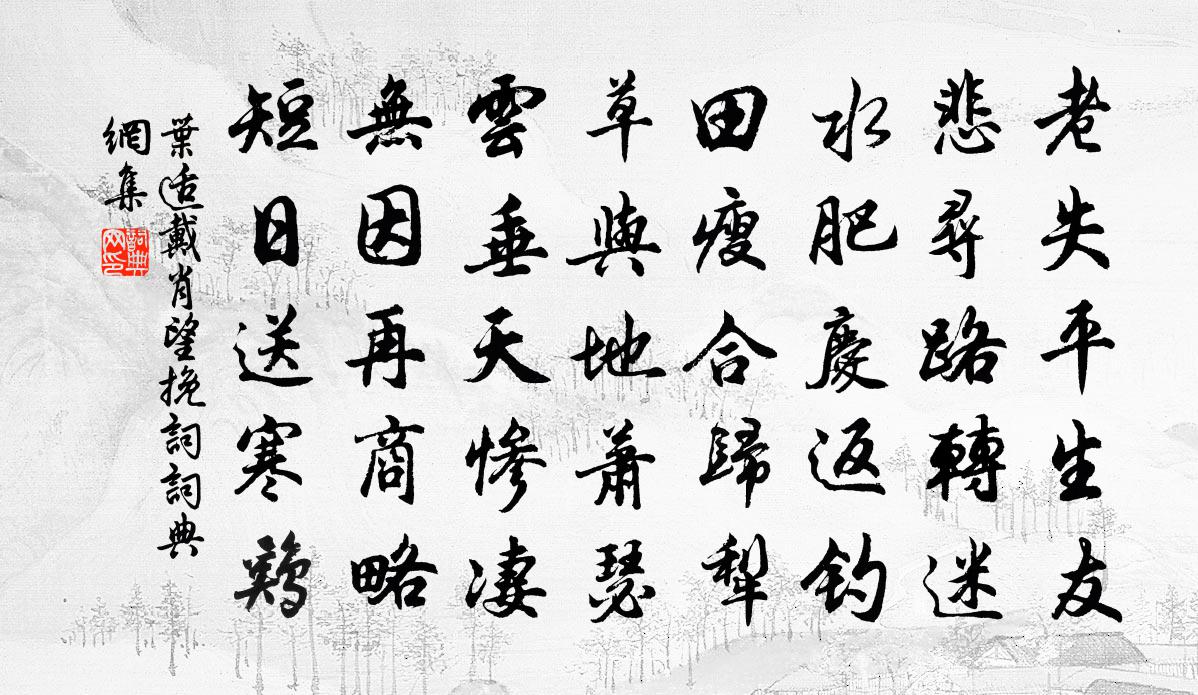 老失平生友
悲尋路轉迷
水肥慶返鈞
田瘦合歸犁
草與地蕭瑟
雲垂天慘凄
無因再商略
短日送寒鷄
葉适戴肖望挽詞詞典
網集
詞典
网印